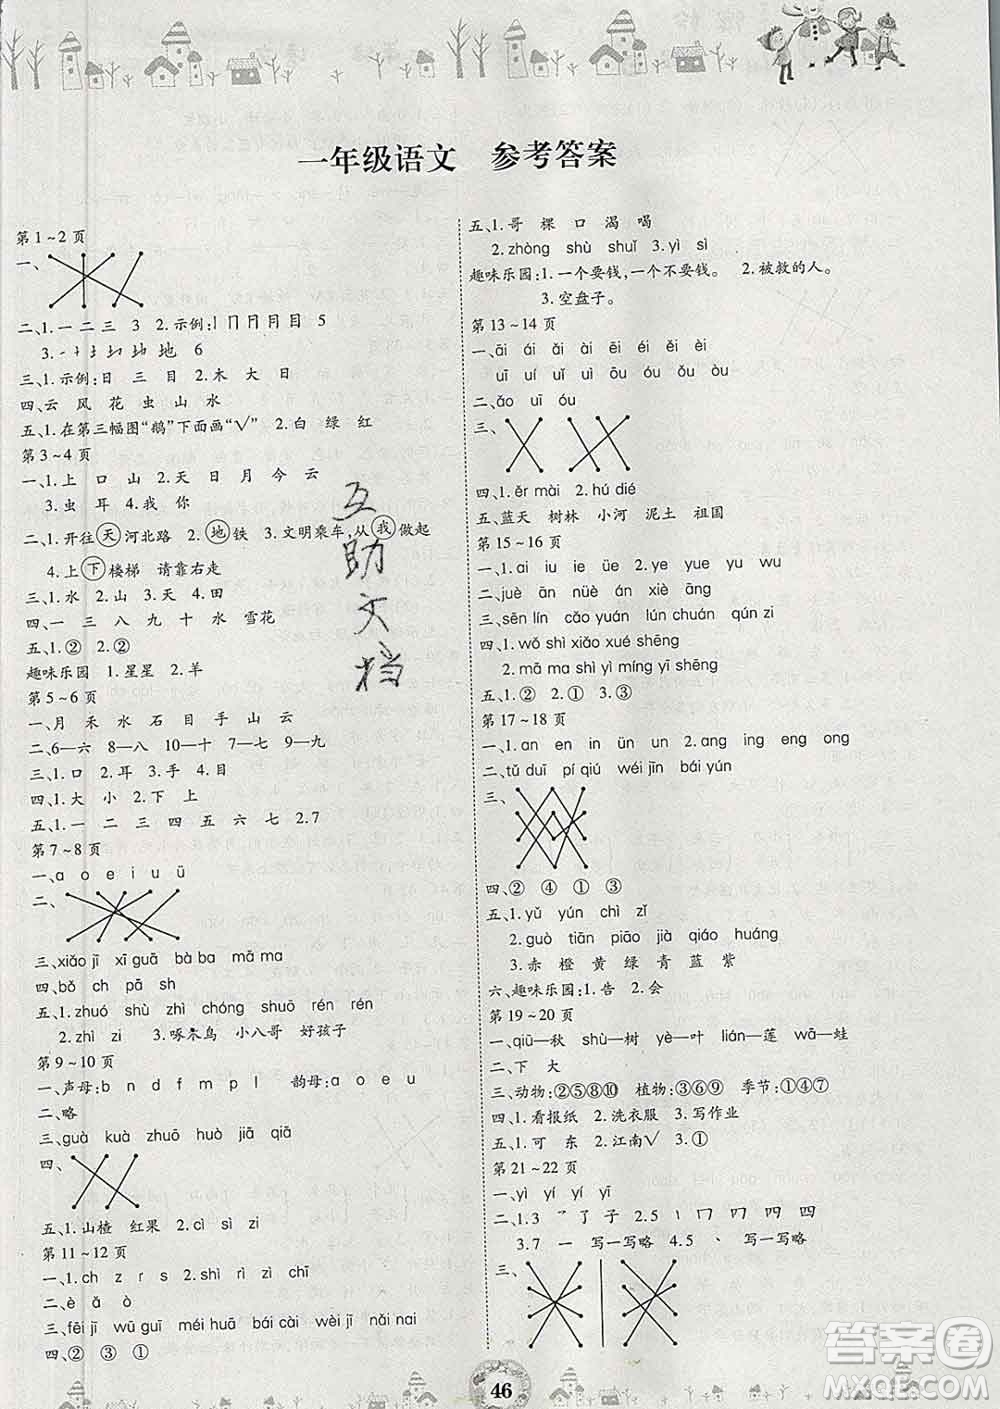 一年级语文 参考答案
第1~2页
一、
二、1.一 二 三 3 2.示例:丨 冂 冃 月 目 5
3. 地 6
三、1.示例:日 三 目 2.木 大 日
四、云 风 花 虫 山 水
五、1.在第三幅图“鹅”下面画“√” 2.白 绿 红
第3~4页
一、1.上 口 山 2.天 日 月 今 云
3.虫 耳 4.我 你
二、1.开往天河北路 2.地铁 3.文明乘车,从我做起
4.上下楼梯 请靠右走
三、1.水 2.山 3.天 4.田
四、一 三 八 九 十 水 雪花
五、1.② 2.②
趣味乐园 1.星星 2.羊
第5~6页
一、月 禾 水 石 目 手 山 云
二、6—六 8—八 10—十 7—七 9—九
三、1.口 2.耳 3.手 4.目
四、1.大 小 2.下 上
五、1.一 二 三 四 五 六 七 2.7
第7~8页
一、a o e i u ü
二、
三、xiǎo jī xī guā bà ba mā ma
四、bǒ ch pā sh
五、1.zhuó shù zhì chóng shuō rén rén
2.zhì zi 3.啄木鸟 小八哥 好孩子
第9~10页
一、声母:b n d f m p l 韵母:a o e u
二、略
三、guà kuà zhuō huò jiā qiā
四、
五、1.山楂 红果 2.cì sì zi
第11~12页
一、1.ch z r s 2.shì rì zì chī
二、è ǎ ò
三、fēi jī wū guī méi huā bái cài wán jù nǎi nai
四、② ③ ①
五、1.哥 棵 口 渴 喝
2.zhòng shù shuǐ 3.yì sì
趣味乐园:1.一个要钱,一个不要钱。 2.被救的人。
3.空盘子。
第13~14页
一、āi ái ǎi ài ēi éi ěi èi
uī uí uǐ uì ōu óu ǒu òu
二、ǎo uī óu
三、
四、1.ěr mài 2.hú dié
五、蓝天 树林 小河 泥土 祖国
第15~16页
一、1.ai iu ie üe 2.ye yue yu wu
二、juè án nüè án máng āng
三、sēn lín cǎo yuán lún chuán qún zi
四、1.wǒ shì xiǎo xué shēng
2.mā ma shì yì míng yī shēng
五、1.② 2.① 3.③
第17~18页
一、1.an en in ün un 2.ang ing eng ong
二、tǔ duī pí qiú wéi jīn bái yún
三、
四、② ④ ① ③
五、1.yǔ yún chì zǐ
2.guò tiān piāo jià qiáo huáng
3.赤 橙 黄 绿 青 蓝 紫
六、趣味乐园:1.告 2.会
第19~20页
一、qiū—秋 shù—树 yè—叶 lián—莲 wā—蛙
二、下 大
三、动物:②⑤⑧⑩ 植物:③⑥⑨ 季节:①④⑦
四、1.看报纸 2.洗衣服 3.写作业
五、1.可 东 2.江南√ 3.①
第21~22页
一、yì yí yí yī
二、1.3 乛 了 子 2.5 丨 冂 四 四
3.7 一 写一写略 4.5 丶 写一写略
三、
互助文档
46
答案圈
MXQE.COM